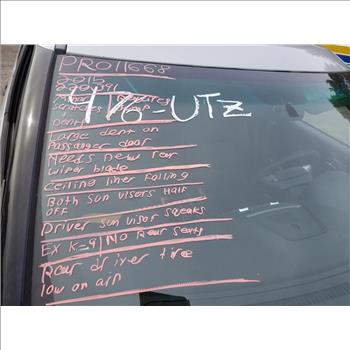 PRO11668
2015
116-UTZ
Dent
Large dent on
Passanger door
Needs new rear
wiper blade
Ceiling liner Falling
Both sun visors Half
OFF
Driver sun visor squeaks
Ex K-9/No Rear seats
Rear driver tire
low on air